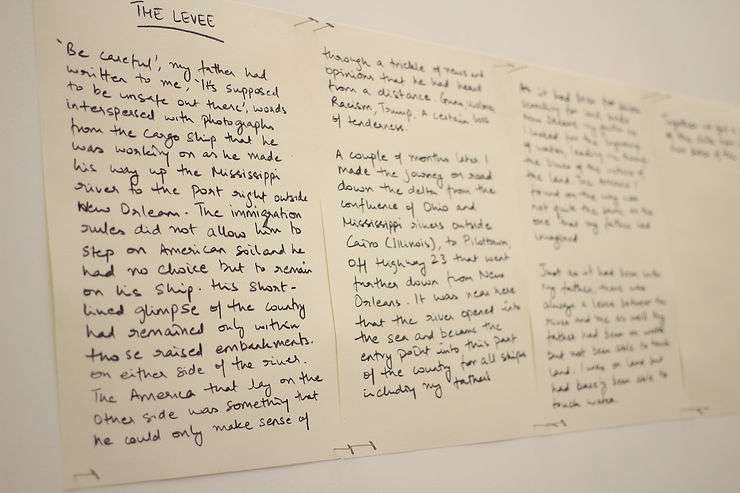 THE LEVEE
'Be careful', my father had
written to me, 'It's supposed
to be unsafe out there', words
interspersed with photographs
from the cargo ship that he
was working on as he made
his way up the Mississippi
river to the port right outside
New Orleans. The immigration
rules did not allow him to
step on American soil and he
had no choice but to remain
on his ship. His short-
lined glimpse of the country
had remained only within
those raised embankments.
on either side of the river.
The America that lay on the
other side was something that
he could only make sense of
through a trickle of news and
opinions that he had heard
from a distance. Guns, violence,
Racism, Trump. A certain loss
of tenderness.
A couple of months later I
made the journey on road
down the delta from the
confluence of Ohio and
Mississippi rivers outside
Cairo (Illinois), to Pilottown,
off Highway 23 that went
further down from New
Orleans. It was near here
that the river opened into
the sea and became the
entry point into this part
of the country for all ships
including my father's
As it had been for
searching for
now
I looked for the
of water, leading my
the lines of the
the land. The America I
found on the way was
not quite the same as the
one that my father had
imagined
Just as it had been with
my father, there was
always a levee between the
river and me as well. My
father had been on water
but not been able to touch
land. I was on land but
had barely been able to
touch water.
Together
of the